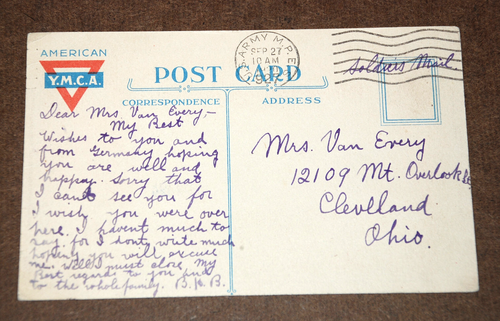 AMERICAN
Y.M.C.A.
ARMY M.P.E.
SEP 27
10 AM
Soldiers Mail
POST CARD
CORRESPONDENCE
ADDRESS
Dear Mrs. Van Every,-
My Best
Wishes to you and
from Germany hoping
you are well and
happy. Sorry that
I can't see you for
I wish you were over
here. I havent much to
say for I dont write much
hoping you will excuse
me. Well I must close. My
Best regards to you and
to the whole family. B.
Mrs. Van Every
12109 Mt. Overlook
Clevelland
Ohio.